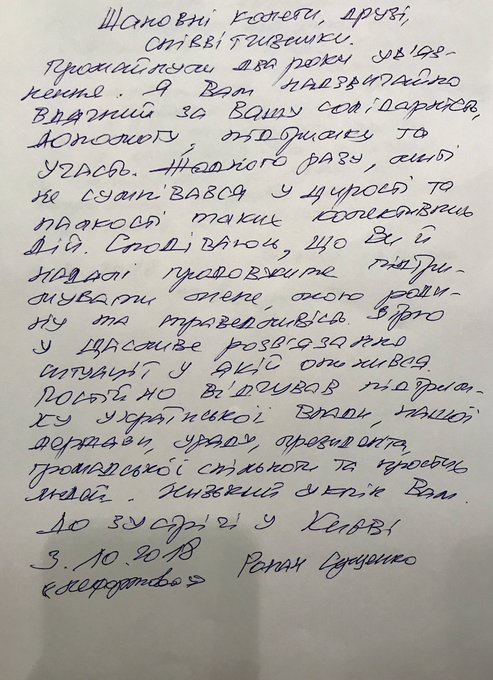 Шановні колеги, друзі,
співвітчизники.
Промайнули два роки ув'яз-
нення. Я Вам надзвичайно
вдячний за Вашу солідарність,
допомогу, підтримку та
участь. Жодного разу, миті
не сумнівався у щирості та
палкості таких колективних
дій. Сподіваюсь, що Ви й
надалі продовжите підтри-
мувати мене, мою роди-
ну та справедливість. Вірю
у щасливе розв'язання
ситуації у якій опинився.
Постійно відчував підтрим-
ку української влади, нашої
держави, уряду, президента,
громадської спільноти та простих
людей. Низький уклін Вам.
До зустрічі у Києві
3.10.2018
«Лефортово» Роман Сущенко